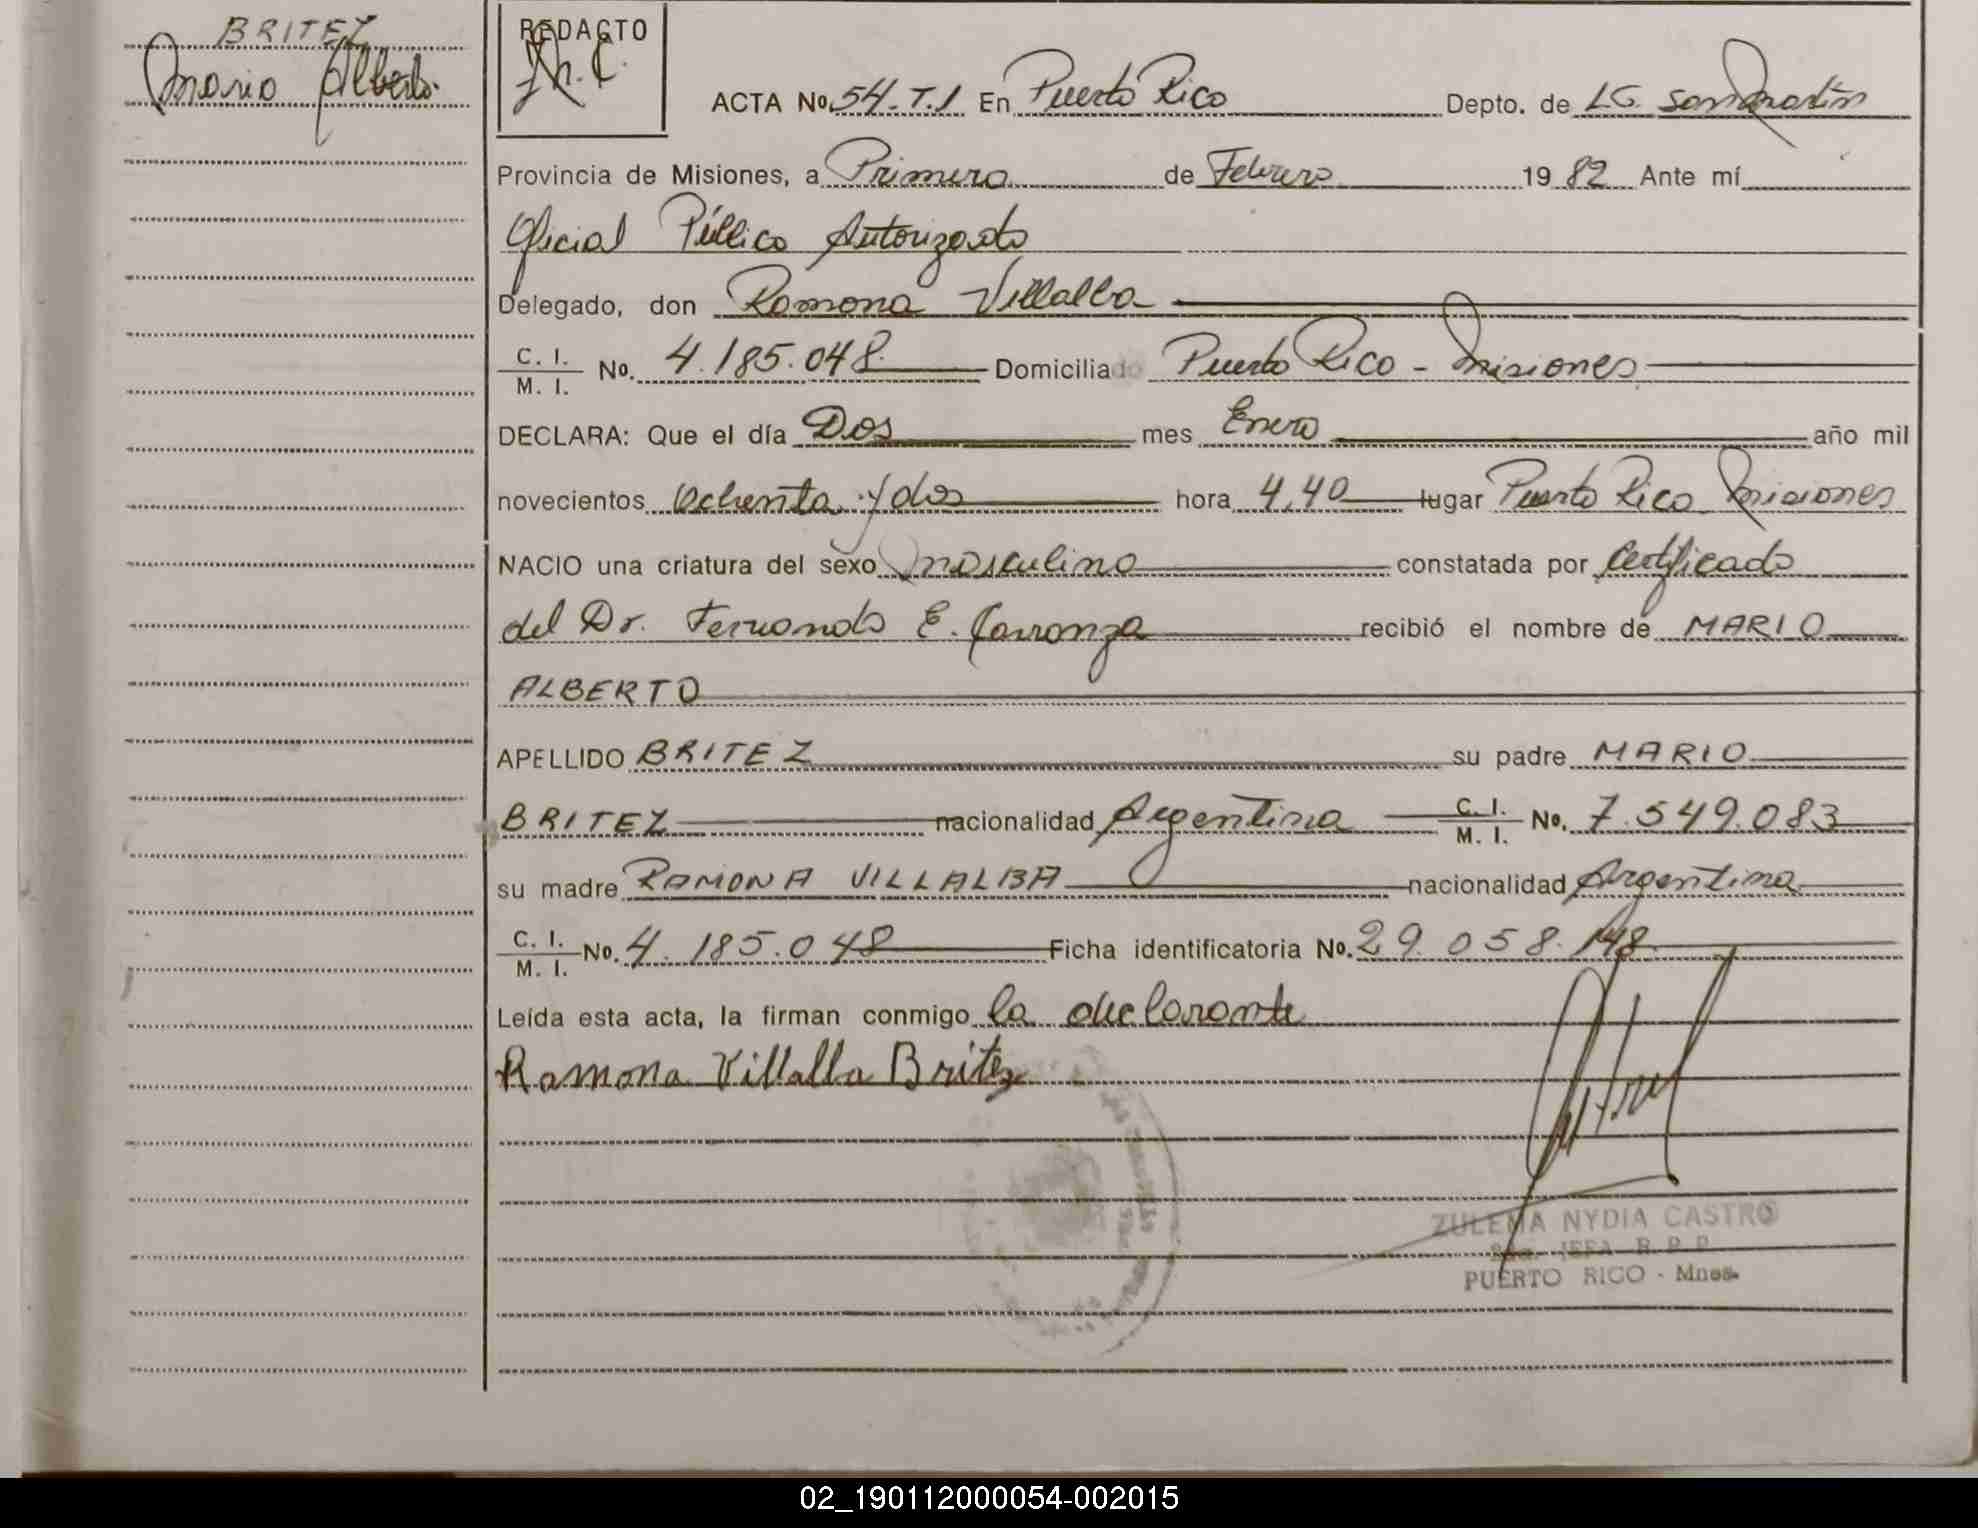 BRITEZ
Mario Alberto.
REDACTO
ACTA No. 54. T.1 En Puerto Rico Depto. de L.G. San Martín
Provincia de Misiones, a Primero de Febrero 19 82 Ante mí
Oficial Público Autorizado
Delegado, don Ramona Villalba
C. I. / M. I. No. 4.185.048 Domicilia Puerto Rico - Misiones
DECLARA: Que el día Dos mes Enero año mil
novecientos Ochenta y dos hora 4,40 lugar Puerto Rico Misiones
NACIO una criatura del sexo Masculino constatada por Certificado
del Dr. Fernando E. Carranza recibió el nombre de MARIO
ALBERTO
APELLIDO BRITEZ su padre MARIO
BRITEZ nacionalidad Argentina C. I. / M. I. No. 7.549.083
su madre RAMONA VILLALBA nacionalidad Argentina
C. I. / M. I. No. 4.185.048 Ficha identificatoria No. 29.058.148
Leída esta acta, la firman conmigo la declarante
Ramona Villalba Britez
ZULEMA NYDIA CASTRO
JEFA R.P.P.
PUERTO RICO - Mnes.
02_190112000054-002015